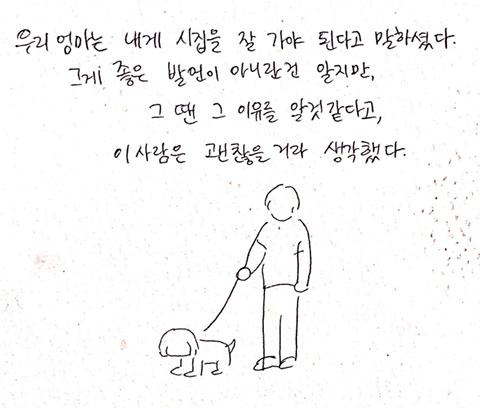 우리 엄마는 내게 시집을 잘 가야 된다고 말하셨다.
그게 좋은 발언이 아니란건 알지만,
그 땐 그 이유를 알것같다고,
이 사람은 괜찮을거라 생각했다.